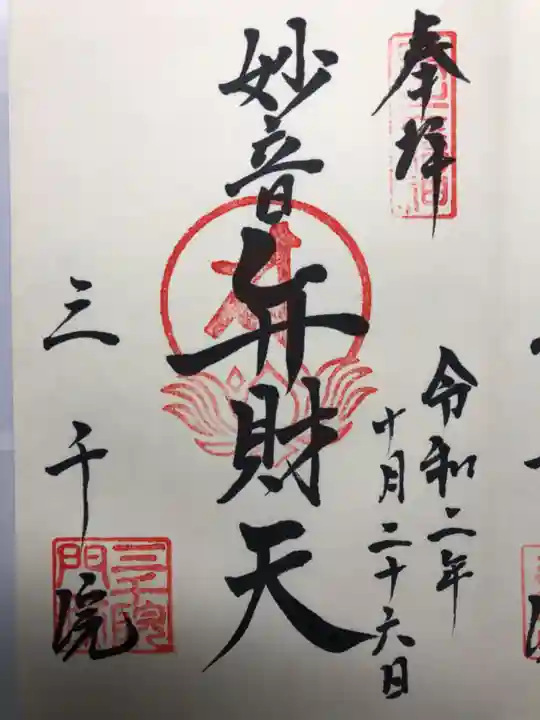 奉拝
令和二年
十月二十六日
妙音弁財天
三千院
三千院
門跡